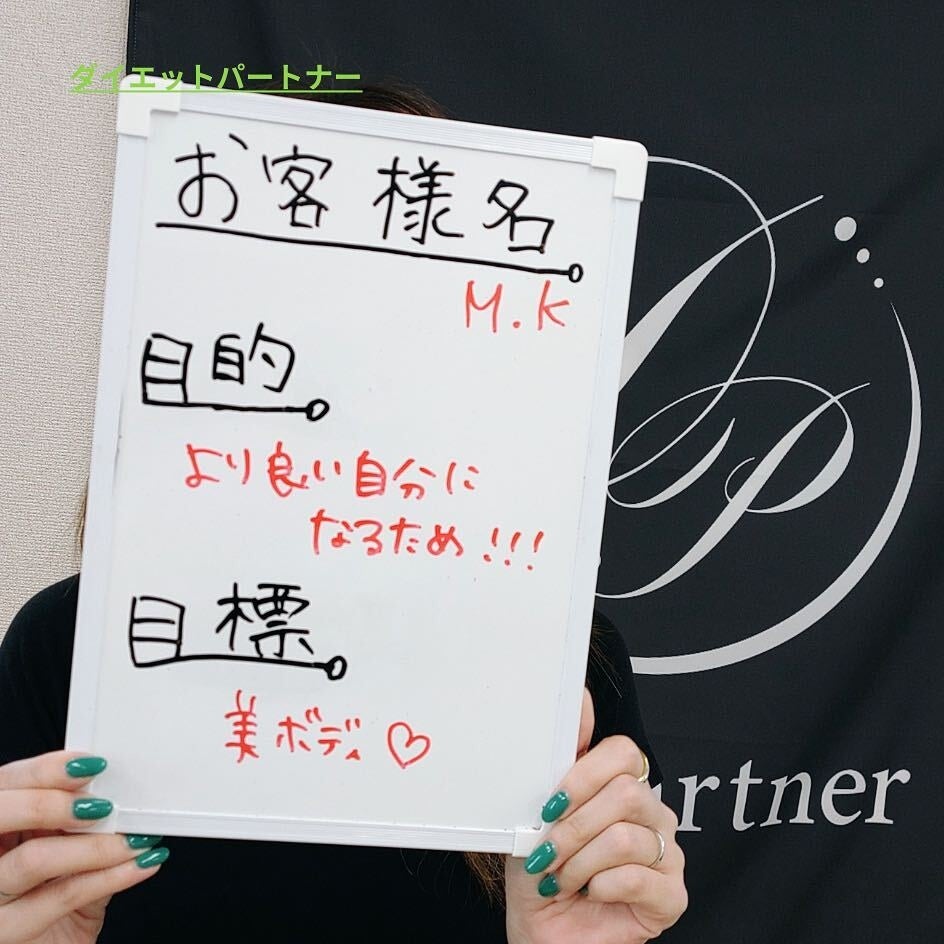 ダイエットパートナー
お客様名
M.K
目的
より良い自分に
なるため!!!
目標
美ボディ♡
artner